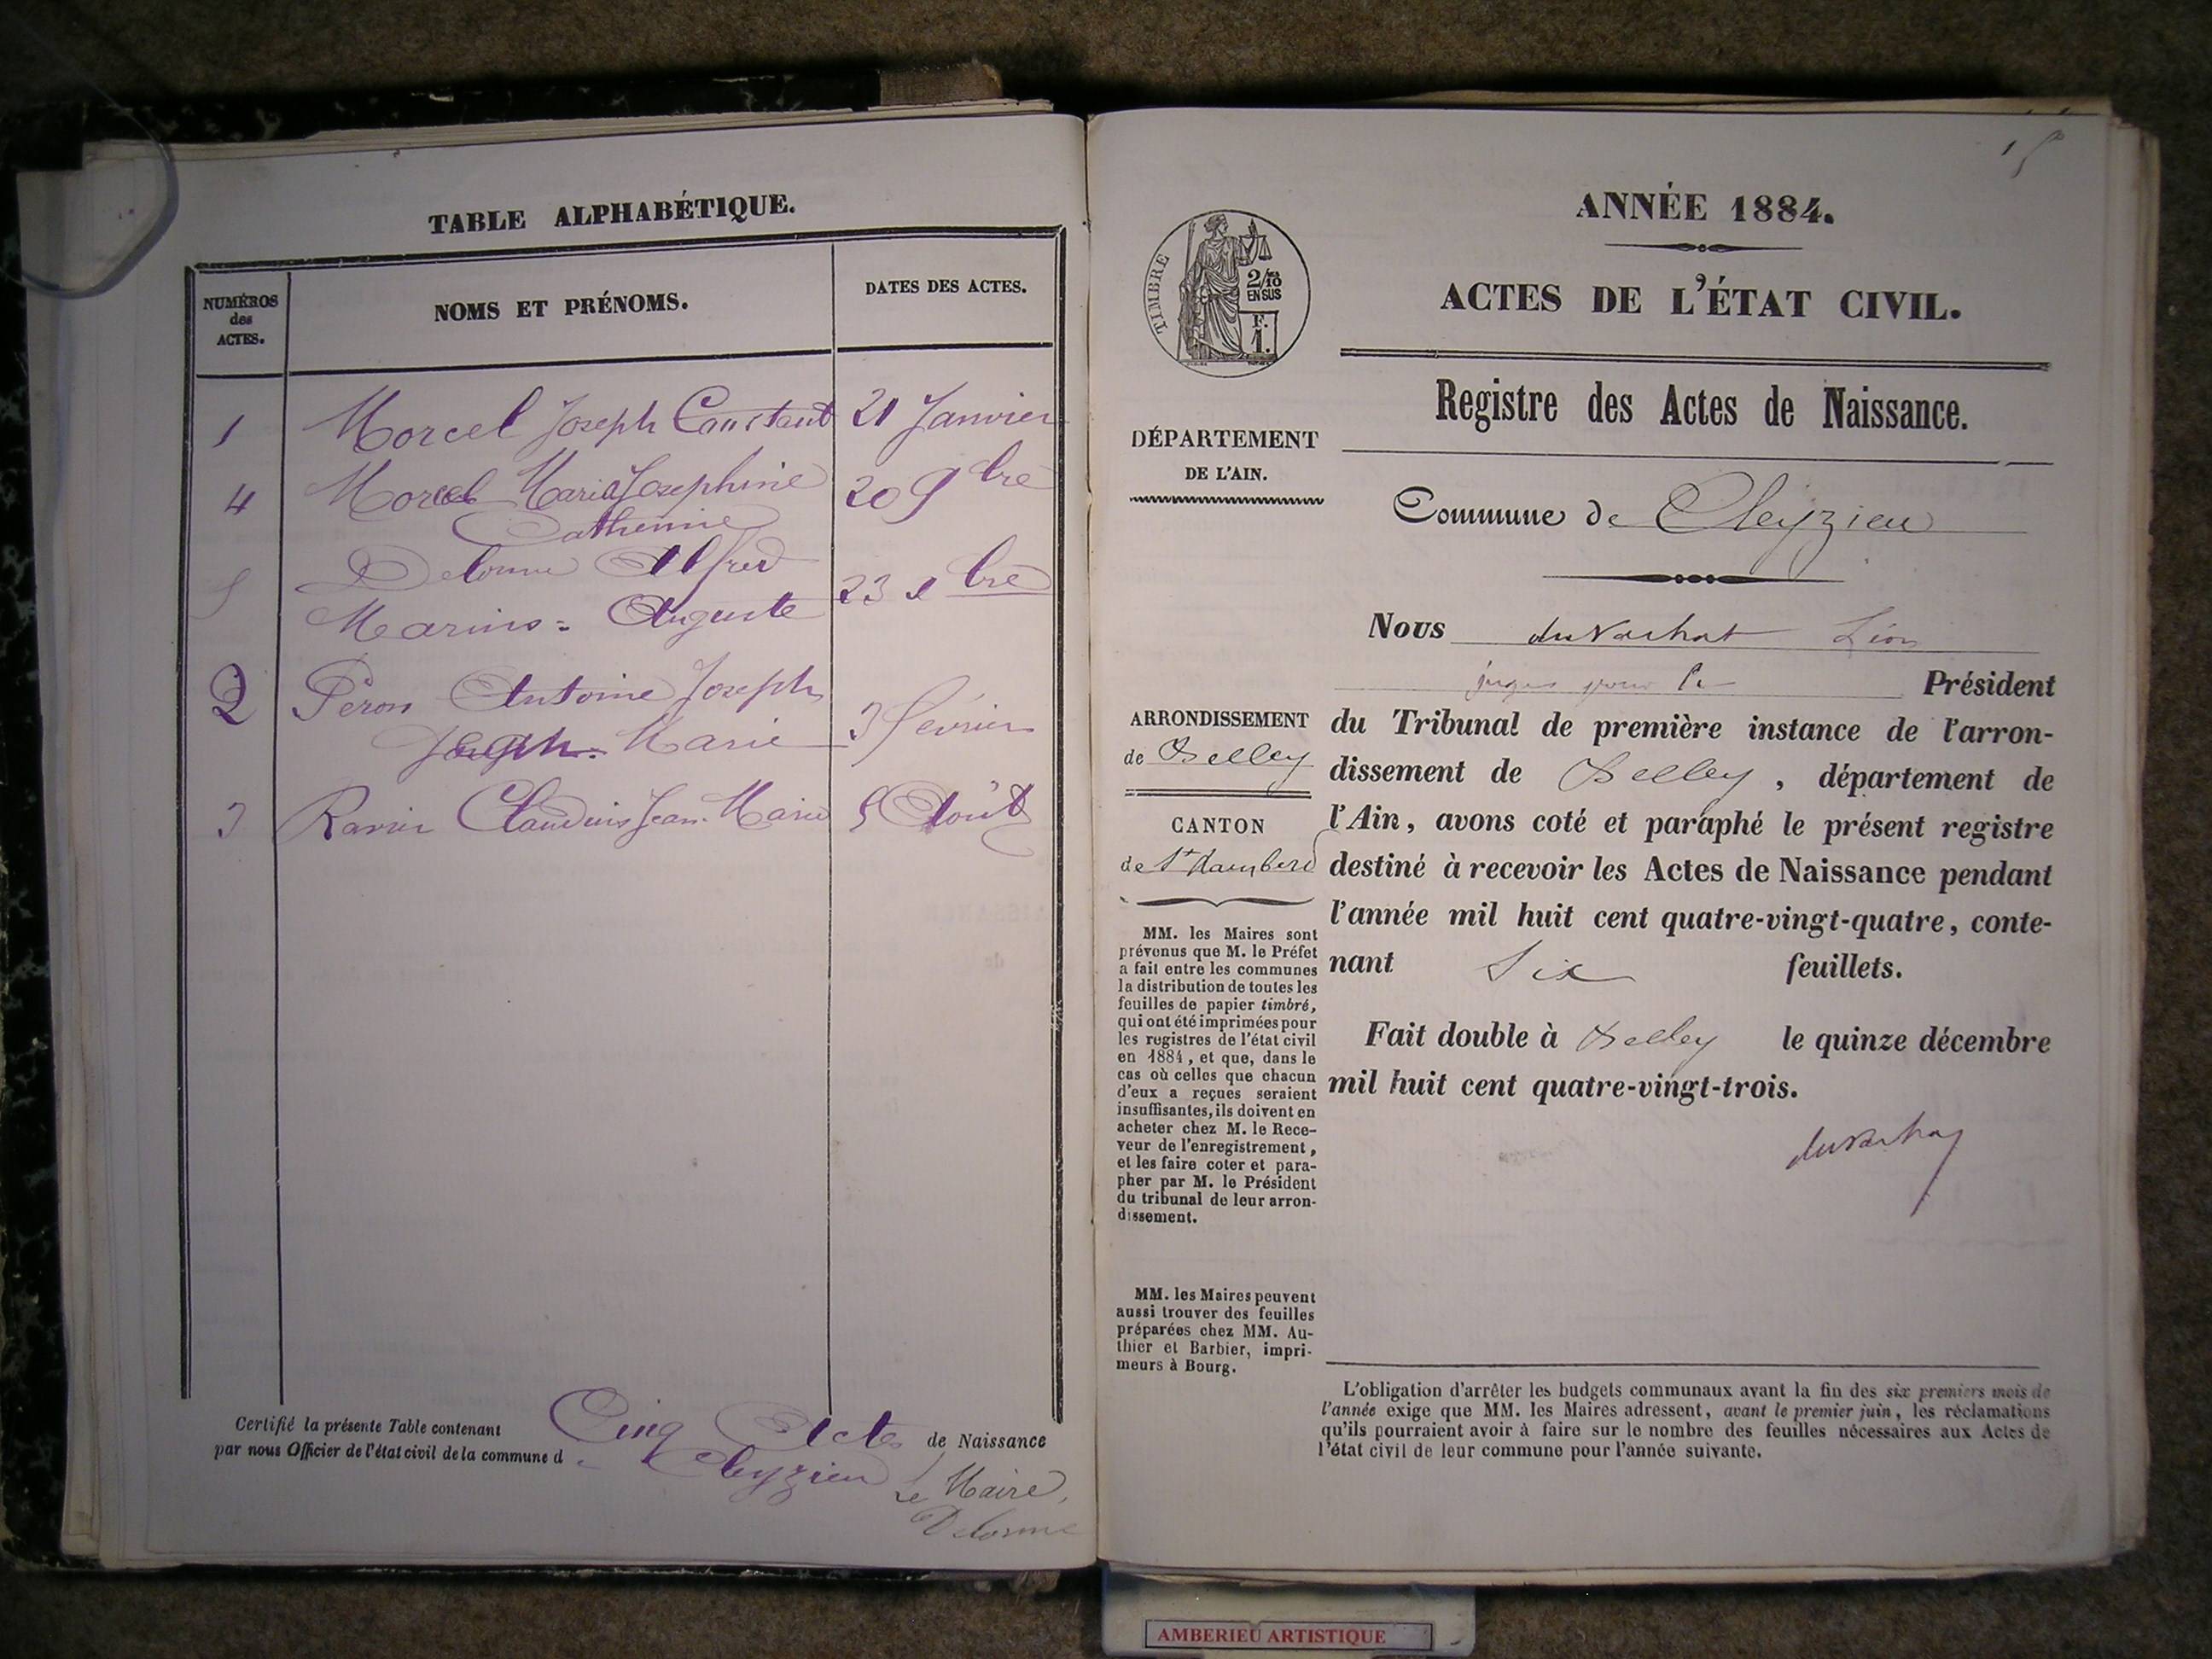 TABLE ALPHABÉTIQUE.
NUMÉROS
des
ACTES.
NOMS ET PRÉNOMS.
DATES DES ACTES.
1 Morcel Joseph Constant 21 Janvier
4 Morcel Maria Josephine 20 9bre
Catherine
5 Delorme Alfred
Marius = Auguste 23 xbre
2 Péron Antoine Joseph
Joseph. Marie 3 février
3 Ravier Claudius Jean-Marie 5 Août
Certifié la présente Table contenant Cinq Actes de Naissance
par nous Officier de l'état civil de la commune d Cleyzieu
Le Maire,
Delorme
15
TIMBRE
2/10
EN SUS
F.
1.
ANNÉE 1884.
ACTES DE L'ÉTAT CIVIL.
Registre des Actes de Naissance.
DÉPARTEMENT
DE L'AIN.
Commune de Cleyzieu
ARRONDISSEMENT
de Belley
CANTON
de St Rambert
MM. les Maires sont
prévenus que M. le Préfet
a fait entre les communes
la distribution de toutes les
feuilles de papier timbré,
qui ont été imprimées pour
les registres de l'état civil
en 1884, et que, dans le
cas où celles que chacun
d'eux a reçues seraient
insuffisantes, ils doivent en
acheter chez M. le Rece-
veur de l'enregistrement,
et les faire coter et para-
pher par M. le Président
du tribunal de leur arron-
dissement.
MM. les Maires peuvent
aussi trouver des feuilles
préparées chez MM. Au-
thier et Barbier, impri-
meurs à Bourg.
Nous Léon
juge pour le Président
du Tribunal de première instance de l'arron-
dissement de Belley, département de
l'Ain, avons coté et paraphé le présent registre
destiné à recevoir les Actes de Naissance pendant
l'année mil huit cent quatre-vingt-quatre, conte-
nant Six feuillets.
Fait double à Belley le quinze décembre
mil huit cent quatre-vingt-trois.
L'obligation d'arrêter les budgets communaux avant la fin des six premiers mois de
l'année exige que MM. les Maires adressent, avant le premier juin, les réclamations
qu'ils pourraient avoir à faire sur le nombre des feuilles nécessaires aux Actes de
l'état civil de leur commune pour l'année suivante.
AMBERIEU ARTISTIQUE